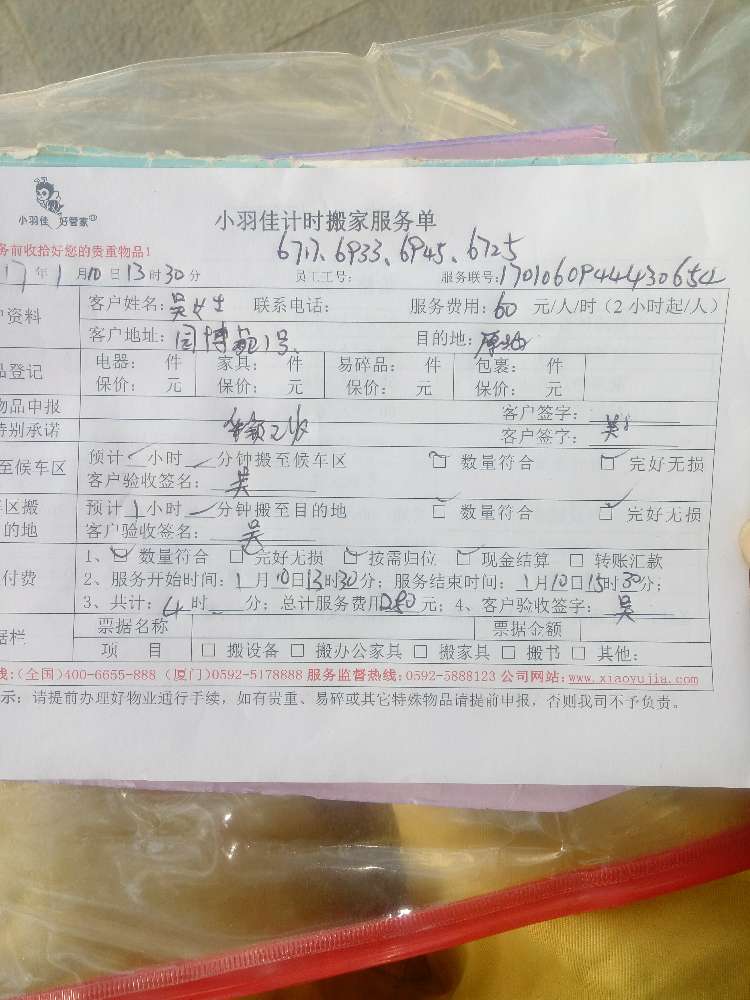 小羽佳 好管家
小羽佳计时搬家服务单
务前收拾好您的贵重物品!
6717、6933、6945、6725
17年1月10日13时30分 员工工号: 服务联号:17010609444430654
户资料 客户姓名:吴女士 联系电话: 服务费用:60元/人/时(2小时起/人)
客户地址:园博苑1号 目的地:原地
品登记 电器: 件 家具: 件 易碎品: 件 包裹: 件
保价: 元 保价: 元 保价: 元 保价: 元
物品申报 客户签字:
特别承诺 客户签字:吴
至候车区 预计 小时 分钟搬至候车区 数量符合 完好无损
客户验收签名:吴
车区搬 预计1小时 分钟搬至目的地 数量符合 完好无损
的地 客户验收签名:吴
1、 数量符合 完好无损 按需归位 现金结算 转账汇款
付费 2、服务开始时间:1月10日13时30分;服务结束时间:1月10日15时30分;
3、共计:4时 分;总计服务费用 元;4、客户验收签字:吴
据栏 票据名称 票据金额
项 目 搬设备 搬办公家具 搬家具 搬书 其他:
线:(全国)400-6655-888 (厦门)0592-5178888 服务监督热线:0592-5888123 公司网站:www.xiaoyujia.com
示:请提前办理好物业通行手续,如有贵重、易碎或其它特殊物品请提前申报,否则我司不予负责。